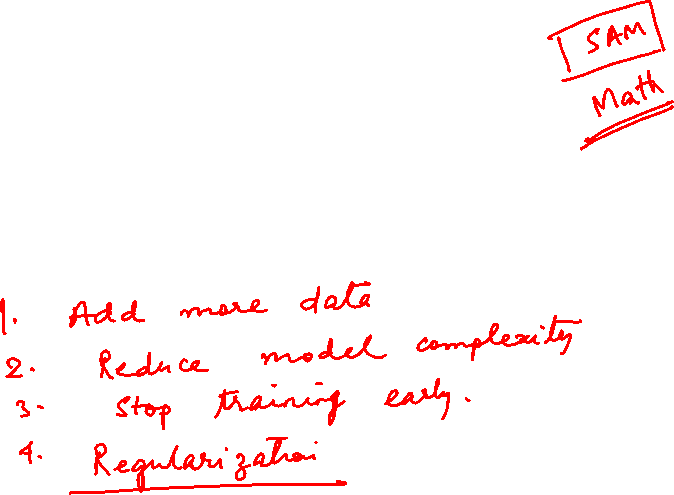 SAM
Math
1. Add more data
2. Reduce model complexity
3- Stop training early.
4. Regularization